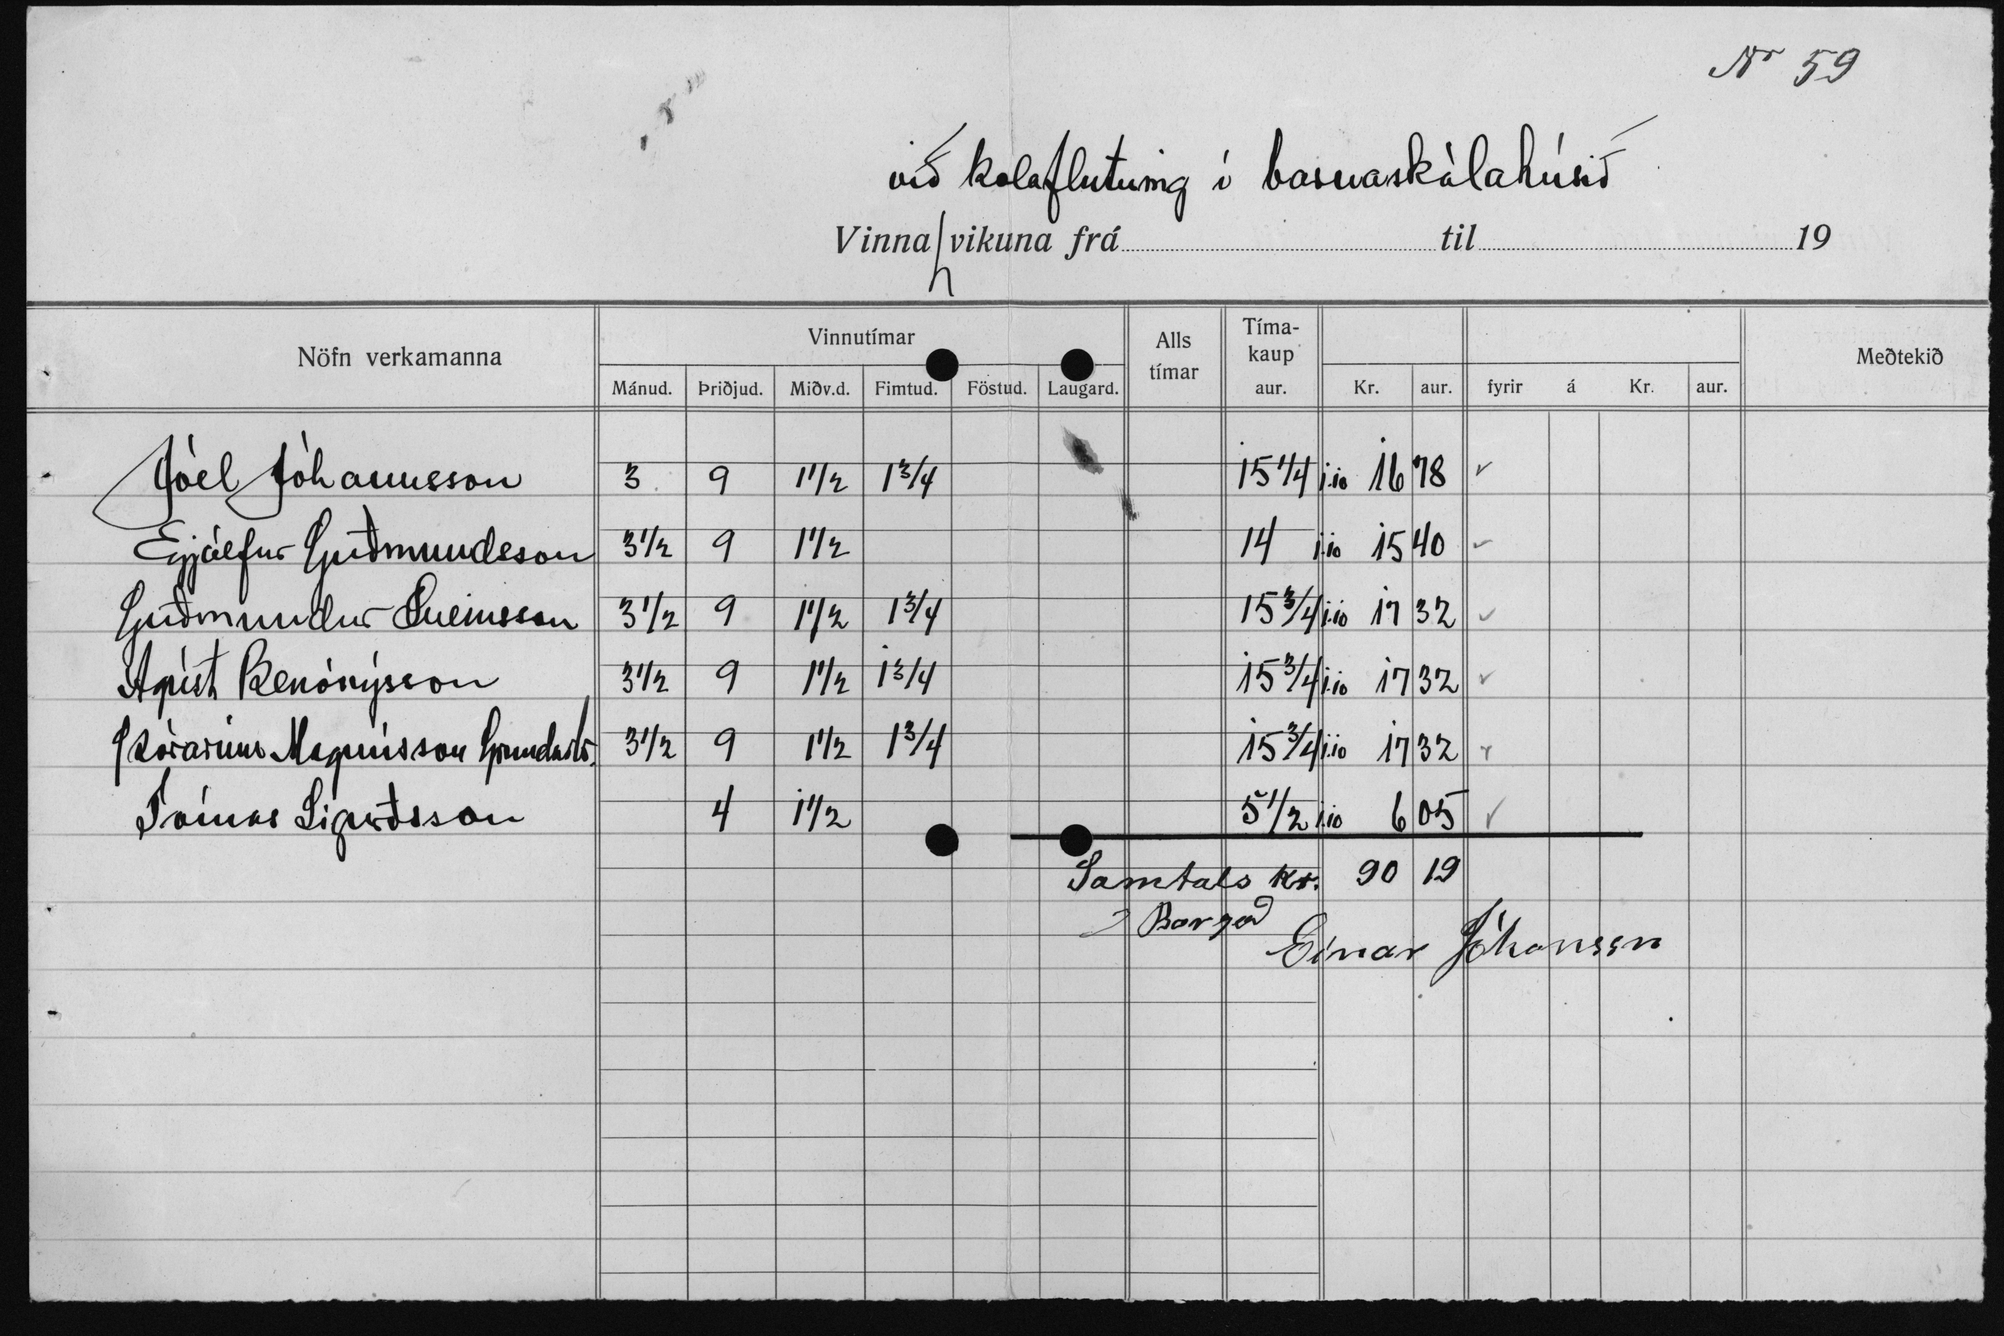 Nr 59
við kolaflutning í barnaskólahúsið
Vinna vikuna frá til 19
Nöfn verkamanna Vinnutímar Alls tímar Tíma-kaup aur. Meðtekið
Mánud. Þriðjud. Miðv.d. Fimtud. Föstud. Laugard. Kr. aur. fyrir á Kr. aur.
Jóel Jóhannsson 3 9 1 1/2 1 3/4 15 1/4 1.10 16 78
Eyjólfur Guðmundsson 3 1/2 9 1 1/2 14 1.10 15 40
Guðmundur Sveinsson 3 1/2 9 1 1/2 1 3/4 15 3/4 1.10 17 32
Ágúst Benónýsson 3 1/2 9 1 1/2 1 3/4 15 3/4 1.10 17 32
Þórarinn Magnússon Grundarbr. 3 1/2 9 1 1/2 1 3/4 15 3/4 1.10 17 32
Tómas Sigurðsson 4 1 1/2 5 1/2 1.10 6 05
Samtals Kr. 90 19
Borgað
Einar Jóhanssn